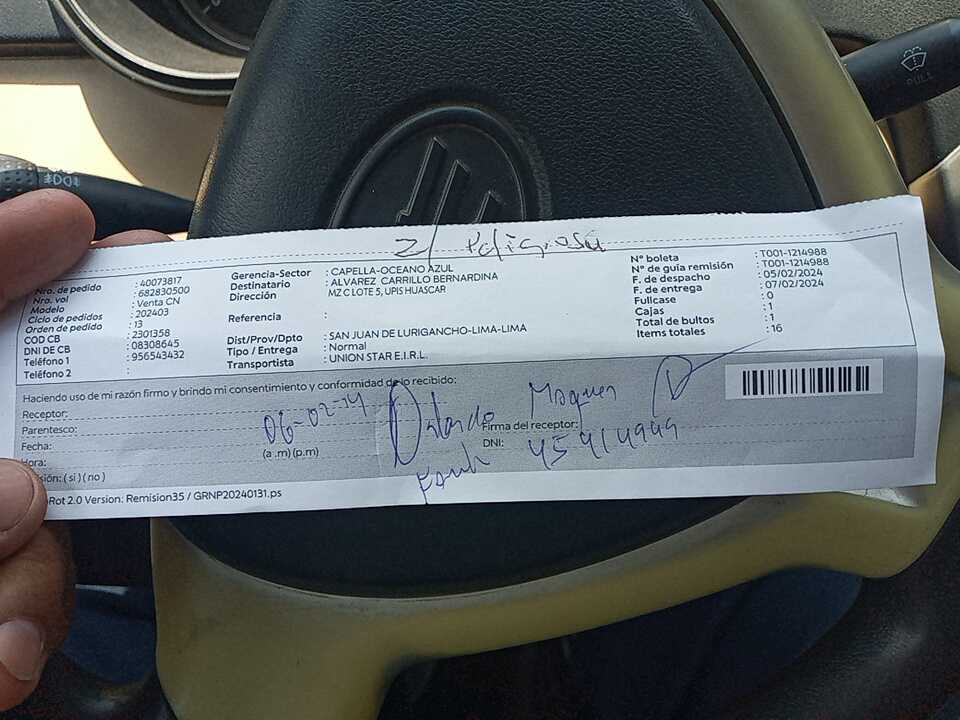 Z/ Peligrosa
Nro. de pedido : 40073817
Nro. vol : 682830500
Modelo : Venta CN
Ciclo de pedidos : 202403
Orden de pedido : 13
COD CB : 2301358
DNI DE CB : 08308645
Teléfono 1 : 956543432
Teléfono 2 :
Gerencia-Sector : CAPELLA-OCEANO AZUL
Destinatario : ALVAREZ CARRILLO BERNARDINA
Dirección MZ C LOTE 5, UPIS HUASCAR
Referencia :
Dist/Prov/Dpto : SAN JUAN DE LURIGANCHO-LIMA-LIMA
Tipo / Entrega : Normal
Transportista : UNION STAR E.I.R.L.
N° boleta : T001-1214988
N° de guía remisión : T001-1214988
F. de despacho : 05/02/2024
F. de entrega : 07/02/2024
Fullcase : 0
Cajas : 1
Total de bultos : 1
Items totales : 16
Haciendo uso de mi razón firmo y brindo mi consentimiento y conformidad de lo recibido:
Receptor:
Parentesco:
Fecha: 06-02-24
Hora: (a .m) (p.m)
sión: ( si ) ( no )
Orlando
Firma del receptor:
DNI: 45914949
Rot 2.0 Version: Remision35 / GRNP20240131.ps
PULL